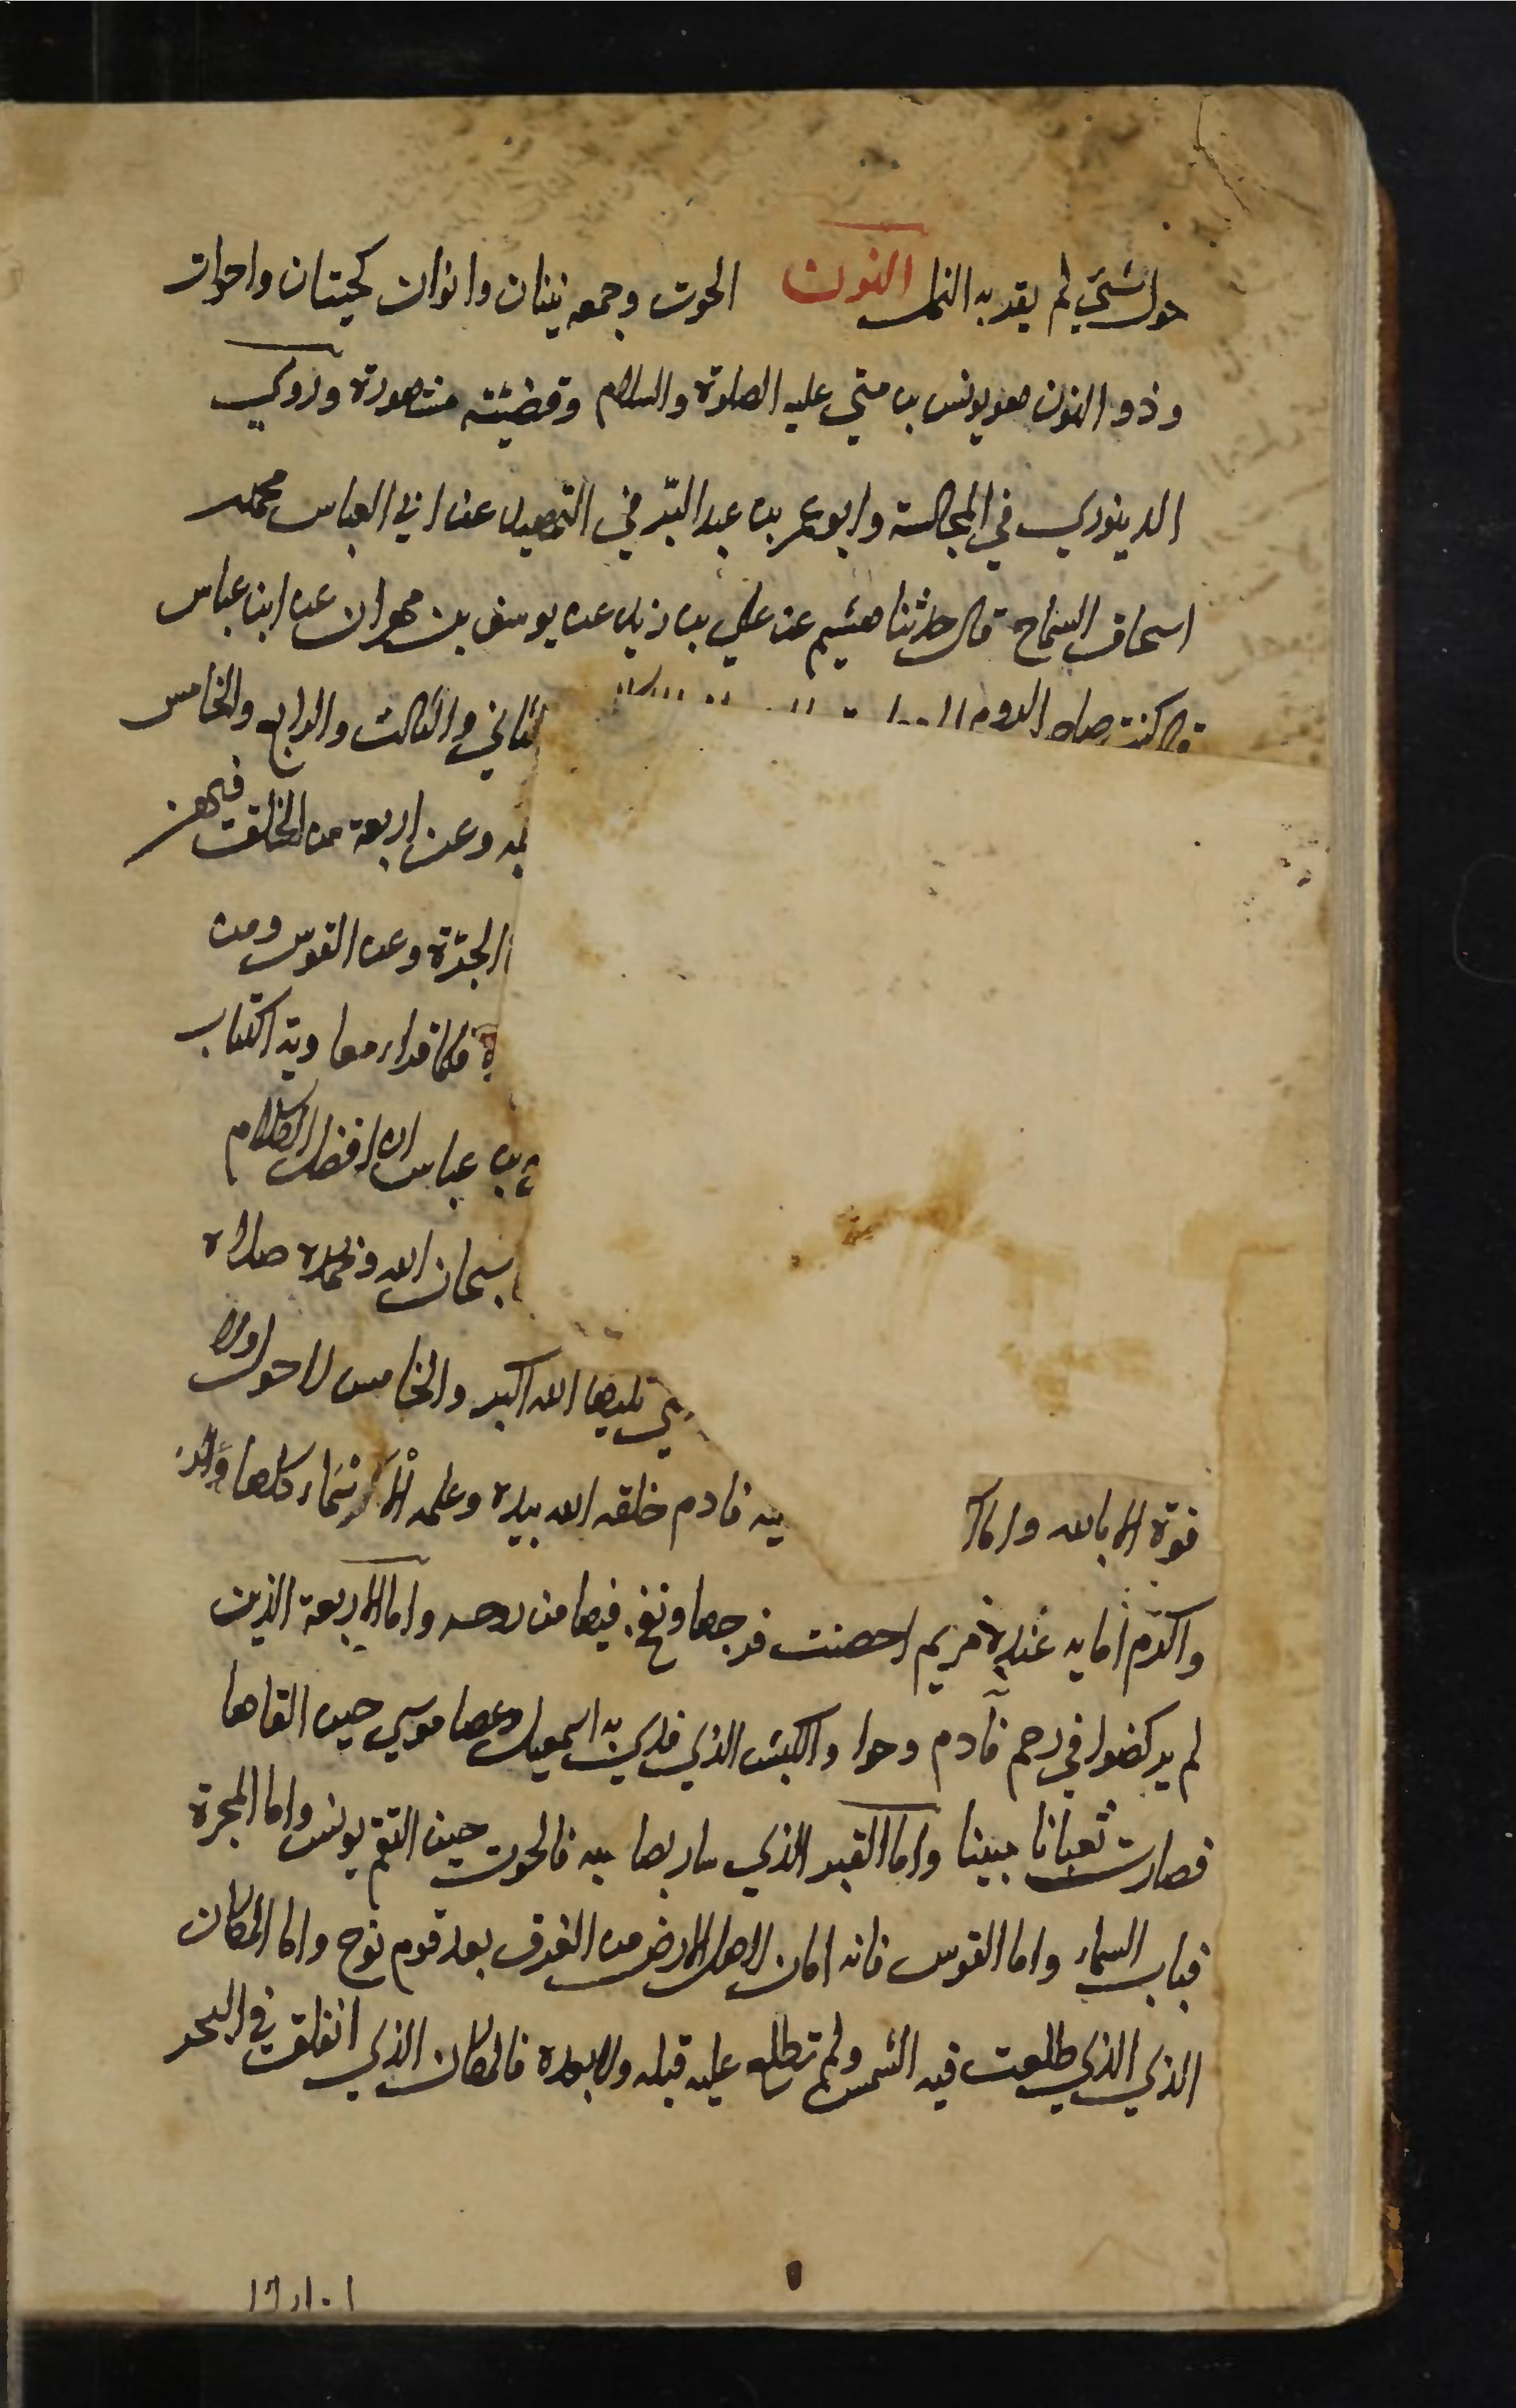 حول شيئ لم يقربه النمل النون الحوت وجمعه نينان وانوان كحيتان واحوات
وذو النون هو يونس بن متي عليه الصلوة والسلام وقضيته مشهورة وروي
الدينوري في المجالسة وابو عمر بن عبد البّر في التمهيد عن ابي العباس محمد
اسحاق السماح قال حدثنا هشيم عن علي بن زيد عن يوسف بن مهران عن ابن عباس
قال كتب صاحب الروم الثاني والثالث والرابع والخامس
وعن اربعة من الخلق فيهن
المجّرة وعن القوس ومن
فلما قراء معاوية الكتاب
بن عباس ان افضل الكلام
سبحان الله وبحمده صلاة
تليها الله اكبر والخامس لا حول ولا
قوة الا بالله واما فادم خلقه الله بيده وعلمه الاسماء كلها
واكرم امايه عنده مريم احصنت فرجها ونفخ فيها من روحه واما الاربعة الذين
لم يركضوا في رحم فآدم وحوا والكبش الذي فدي به اسمعيل وعصا موسي حين القاها
فصارت ثعبانا مبينا واما القبر الذي سار بصاحبه فالحوت حين التقم يونس واما المجرة
فباب السماء واما القوس فانه امان لاهل الارض من الغرق بعد قوم نوح واما المكان
الذي الذي طلعت فيه الشمس ولم تطلع عليه قبله ولا بعده فالمكان الذي انفلق في البحر